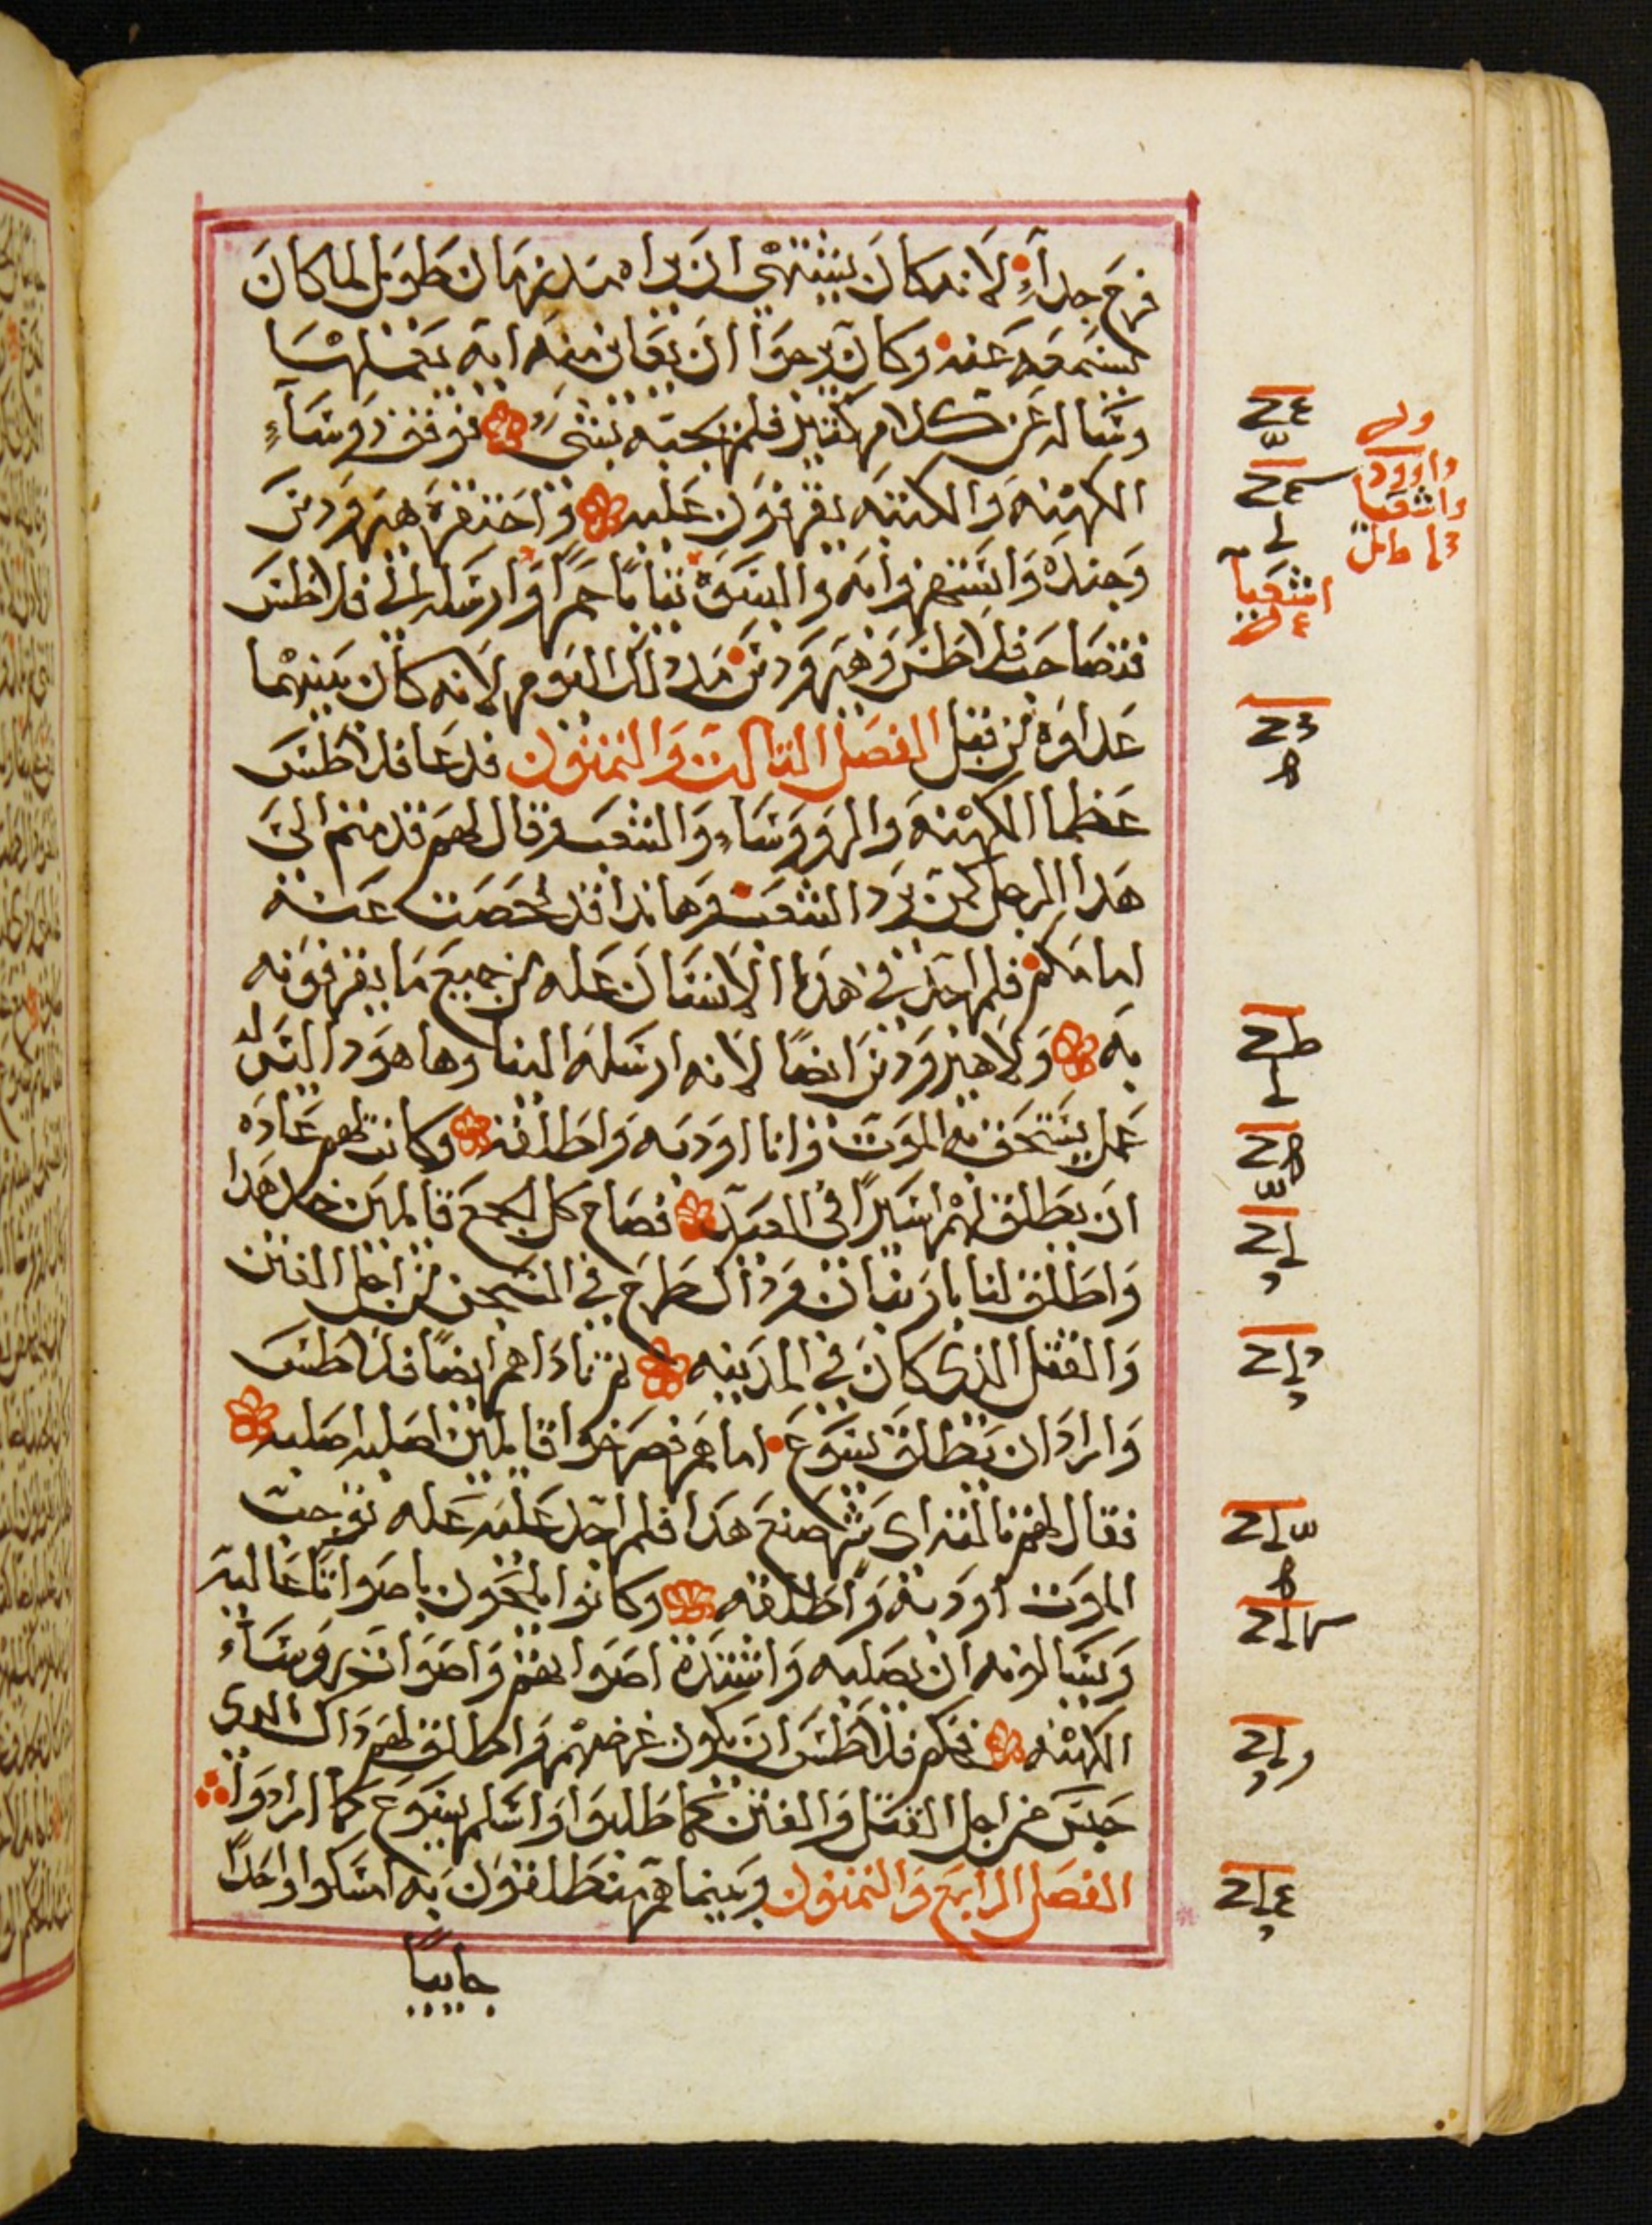 فرح جداً لانه كان يشتهي ان يراه منذ زمان طويل لما كان
يسمعه عنه وكان يرجوا ان يعاين منه ايه يعملها
وساله عن كلام كثير فلم يجبه بشيء فوقف روساء
الكهنه والكتبه يقرفون عليه واحتقره هيرودس
وجنده واستهزوا به والبسوه ثياباً حمراً وارسله الى فلاطس
فتصاحب فلاطس وهيرودس مذ ذلك اليوم لانه كان بينهما
عداوه من قبل الفصل الثالث والثمنون فدعا فلاطس
عظما الكهنه والروساء والشعب وقال لهم قدمتم الي
هدا الرجل كمن يرد الشعب وهاندا قد فحصت عنه
امامكم فلم اجد في هدا الانسان عله من جميع ما يقرفونه
به ولا هيرودس ايضاً لانه ارسله الينا وها هودا ليس له
عمل يستحق به الموت وانا اودبه واطلقه وكانت لهم عاده
ان يطلق لهم اسيراً في العيد فصاح كل الجمع قايلين خد هدا
واطلق لنا باربان وذاك طرح في السجن من اجل الفتن
والقتل الذي كان في المدينه ثم ناداهم ايضاً فلاطس
واراد ان يطلق يسوع اما هم فصرخوا قايلين اصلبه اصلبه
فقال لهم ثالثه اي شر صنع هدا فلم اجد عليه عله توجب
الموت اودبه واطلقه وكانوا يلحون باصواتا عاليه
ويسالونه ان يصلبه واشتدة اصواتهم واصوات روساء
الكهنه فحكم فلاطس ان يكون غرضهم واطلق لهم داك الدي
حبس من اجل القتل والفتن كما طلبوا واسلم يسوع كما ارادوا
الفصل الرابع والثمنون وبينما هم منطلقون به امسكوا واحداً
جاييا
داوود
واشعيا
اشعيا